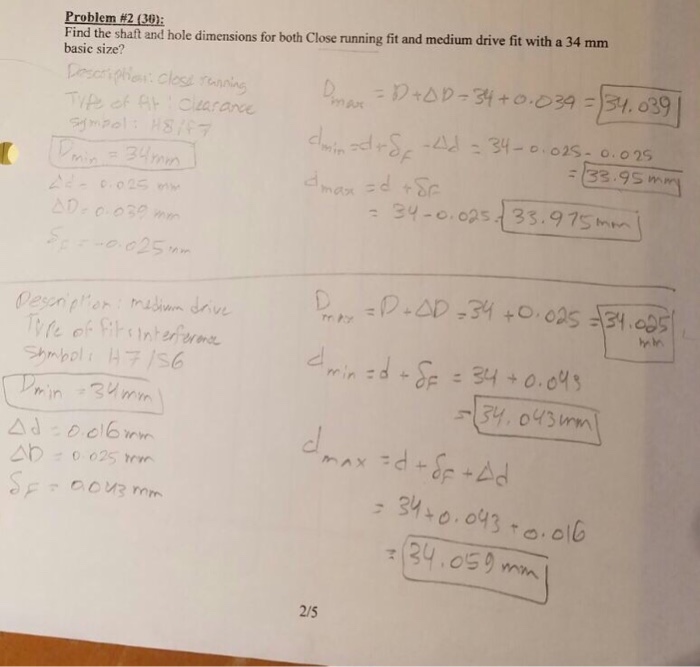 Problem #2 (30):
Find the shaft and hole dimensions for both Close running fit and medium drive fit with a 34 mm
basic size?
Description: close running
Type of fit: Clearance
symbol: H8/f7
Dmin = 34mm
Δd = 0.025 mm
ΔD = 0.039 mm
δF = -0.025 mm
Dmax = D + ΔD = 34 + 0.039 = 34.039
dmin = d + δF - Δd = 34 - 0.025 - 0.025
= 33.95 mm
dmax = d + δF
= 34 - 0.025 = 33.975mm
Description: medium drive
Type of fit: Interference
Symbol: H7/S6
Dmin = 34mm
Δd = 0.016mm
ΔD = 0.025 mm
δF = 0.043 mm
Dmax = D + ΔD = 34 + 0.025 = 34.025
mm
dmin = d + δF = 34 + 0.043
= 34.043mm
dmax = d + δF + Δd
= 34 + 0.043 + 0.016
= 34.059 mm
2/5